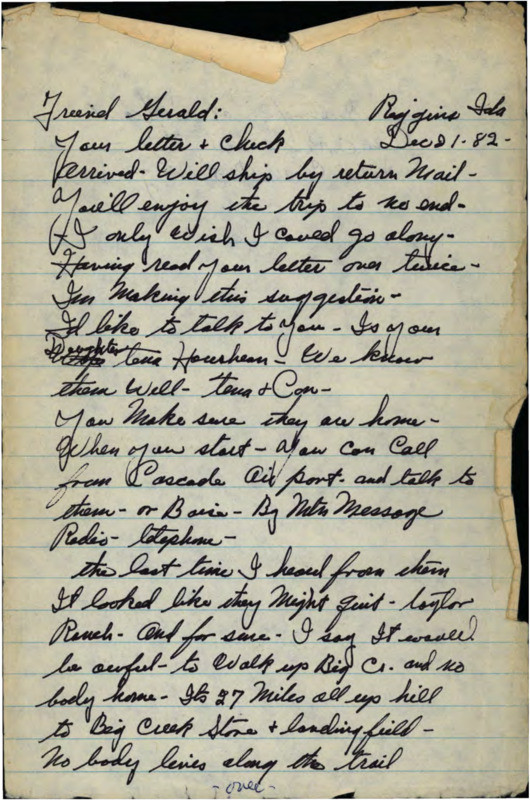 Freind Gerald: Riggins Ida
Dec 21-82-
Your letter + check
Arrived- Will ship by return Mail-
You'll enjoy the trip to no end-
+ I only wish I could go along-
Having read your letter over twice-
Im Making this suggestion-
Id like to talk to you- Is your
Daughter tena Hourhean- We know
them well- tena + Con-
You Make sure they are home-
When you start- you can Call
from Cascade Air port- and talk to
them- or Boise- By Mtn Message
Radio- telephone-
the last time I heard from them
It looked like they Might quit- taylor
Ranch- And for sure- I say It would
be awful- to Walk up Big Cr. and no
body home- Its 27 Miles all up hill
to Big Creek Store + landing field-
No body lives along the trail
-over-